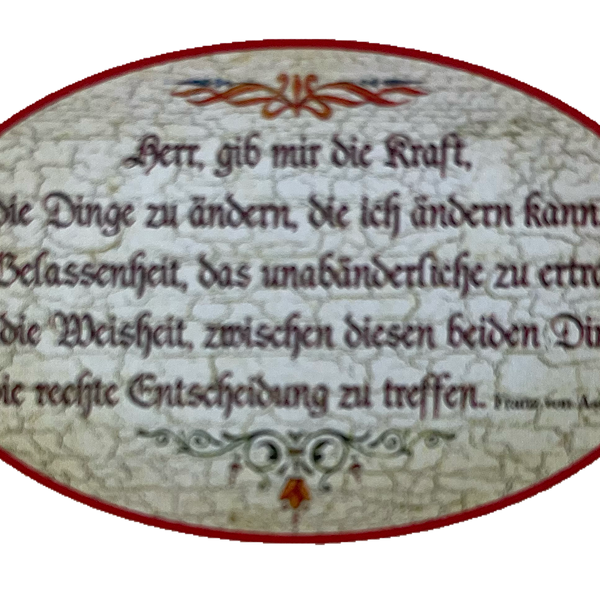 Herr, gib mir die Kraft,
die Dinge zu ändern, die ich ändern kann
Gelassenheit, das unabänderliche zu ertra
die Weisheit, zwischen diesen beiden Din
die rechte Entscheidung zu treffen. Franz von As